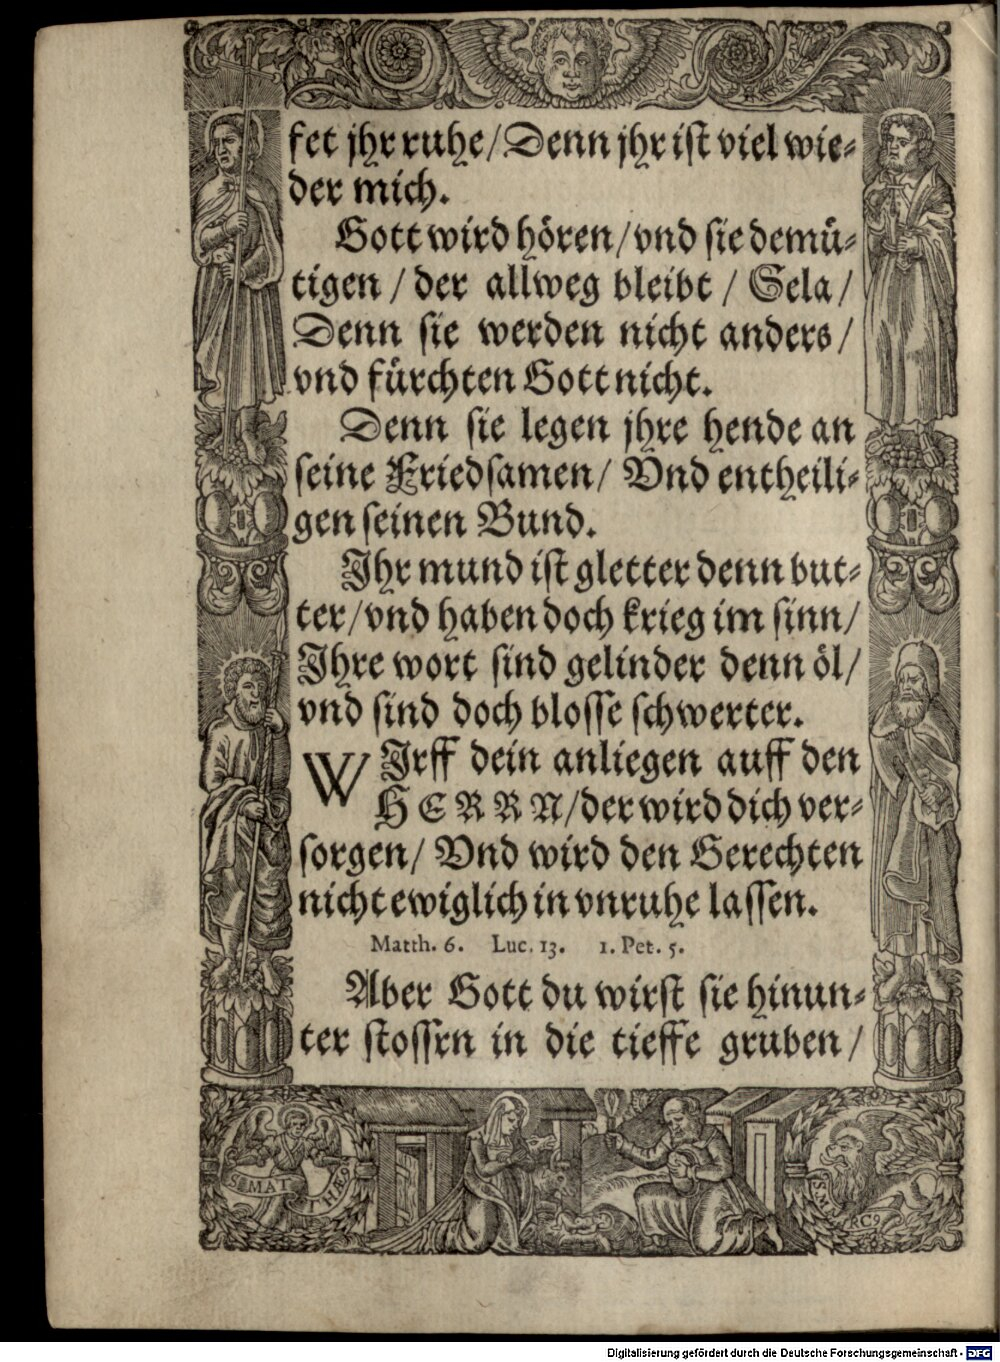 fet jhr ruhe/ Denn jhr ist viel wie-
der mich.
Gott wird hören/ vnd sie demü-
tigen / der allweg bleibt / Sela /
Denn sie werden nicht anders /
vnd fürchten Gott nicht.
Denn sie legen jhre hende an
seine Friedsamen/ Vnd entheili-
gen seinen Bund.
Ihr mund ist gletter denn but-
ter/ vnd haben doch krieg im sinn/
Ihre wort sind gelinder denn öl/
vnd sind doch blosse schwerter.
WIrff dein anliegen auff den
HERRN/ der wird dich ver-
sorgen/ Vnd wird den Gerechten
nicht ewiglich in vnruhe lassen.
Matth. 6. Luc. 13. 1. Pet. 5.
Aber Gott du wirst sie hinun-
ter stossen in die tieffe gruben /
S MAT THÆ9
S. MA RC9
Digitalisierung gefördert durch die Deutsche Forschungsgemeinschaft - DFG